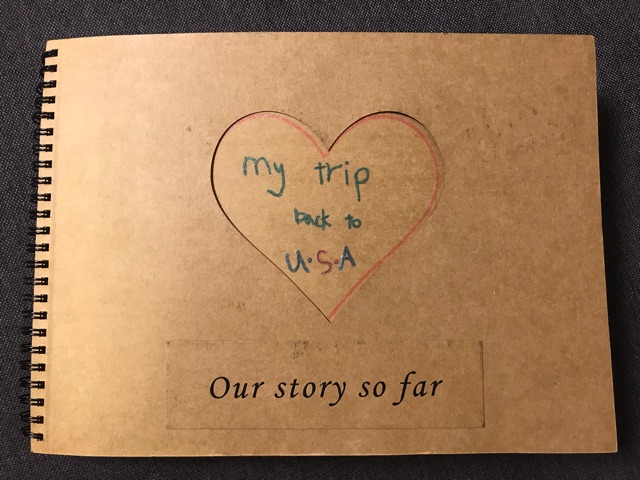 my trip
back to
U.S.A
Our story so far